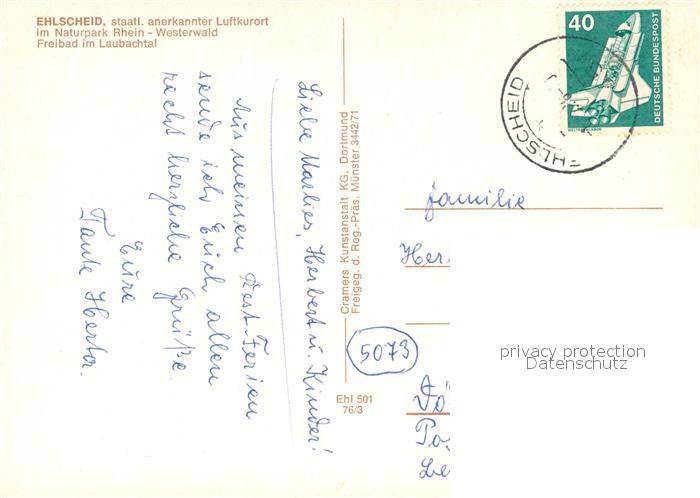 EHLSCHEID, staatl. anerkannter Luftkurort
im Naturpark Rhein - Westerwald
Freibad im Laubachtal
Liebe Marlies, Herbert u. Kinder!
Aus meinen Rest-Ferien
sende ich Euch allen
recht herzliche Grüße.
Eure
Tante Herta.
Cramers Kunstanstalt KG, Dortmund
Freigeg. d. Reg.-Präs. Münster 3442/71
Ehl 501
76/3
40
DEUTSCHE BUNDESPOST
WELTRAUMLABOR
EHLSCHEID
Familie
Her
5073
privacy protection
Datenschutz